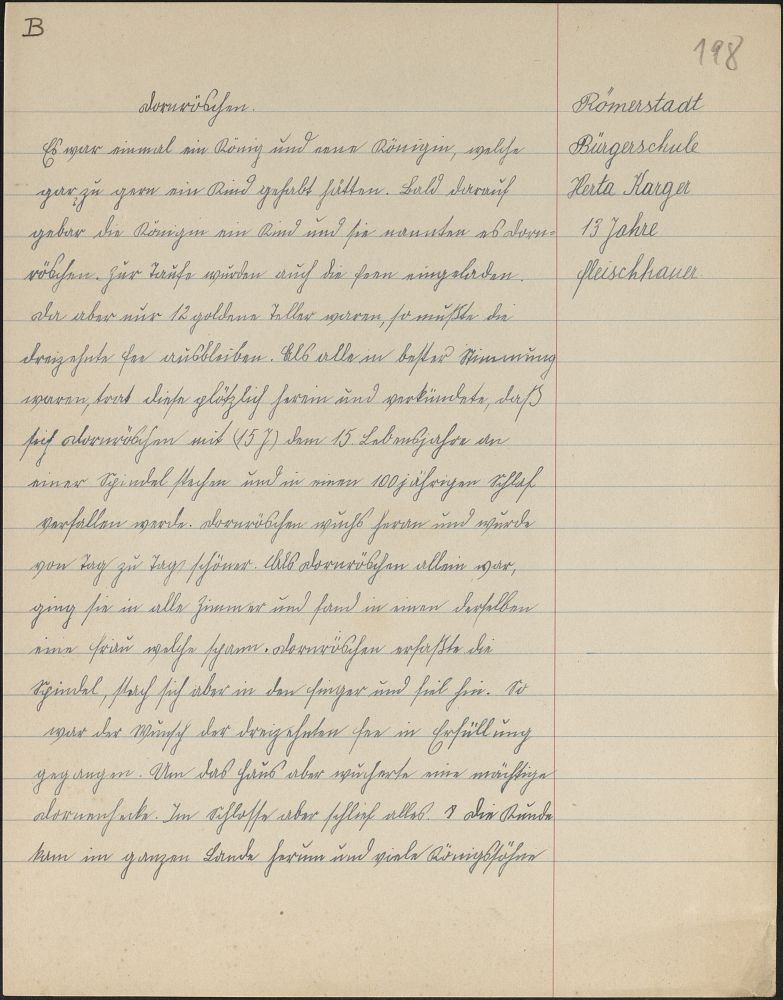 B
198
Dornröschen.
Es war einmal ein König und eine Königin, welche
gar zu gern ein Kind gehabt hätten. Bald darauf
gebar die Königin ein Kind und sie nannten es Dorn=
röschen. Zur Taufe wurden auch die Feen eingeladen.
Da aber nur 12 goldene Teller waren, so mußte die
dreizehnte Fee ausbleiben. Als alle in bester Stimmung
waren, trat diese plötzlich herein und verkündete, daß
sich Dornröschen mit (15 J) dem 15. Lebensjahre an
einer Spindel stechen und in einen 100 jährigen Schlaf
verfallen werde. Dornröschen wuchs heran und wurde
von Tag zu Tag schöner. Als Dornröschen allein war,
ging sie in alle Zimmer und fand in einen derselben
eine Frau welche spann. Dornröschen erfaßte die
Spindel, stach sich aber in den Finger und fiel hin. So
war der Wunsch der dreizehnten Fee in Erfüllung
gegangen. Um das Haus aber wucherte eine mächtige
Dornenhecke. Im Schlosse aber schlief alles. Die Kunde
kam im ganzen Lande herum und viele Königssöhne
Römerstadt
Bürgerschule
Herta Karger
13 Jahre
Fleischhauer.